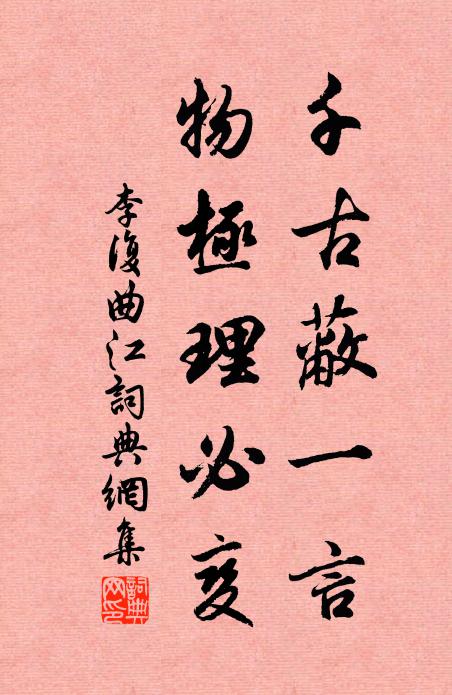 千古蔽一言
物極理必变
李復曲江詞典網集
詞典網印